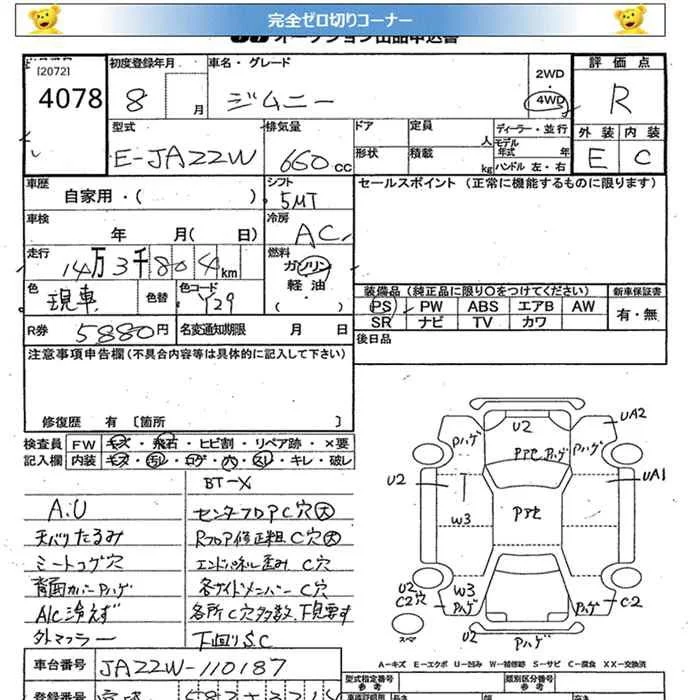 完全ゼロ切りコーナー
オークション出品申込書
[2072]
4078
初度登録年月
8 月
車名・グレード
ジムニー
2WD
4WD
評価点
R
外装 内装
E C
型式
E-JA22W
排気量
660 CC
ドア
形状
定員 人
積載 kg
ディーラー・並行
モデル年式 年
ハンドル 左・右
車歴
自家用・( )
シフト
5MT
セールスポイント (正常に機能するものに限ります)
車検
年 月( 日)
冷房
AC
走行
14万3千804km
燃料
ガソリン
軽油
( )
色
現車
色替
色コード
Y29
装備品(純正品に限り〇をつけてください)
新車保証書
PS PW ABS エアB AW
SR ナビ TV カワ
有・無
R券
5880円
名変通知期限 月 日
後日品
注意事項申告欄(不具合内容等は具体的に記入して下さい)
修復歴 有 〔箇所 〕
検査員記入欄
FW キズ・飛石・ヒビ割・リペア跡・×要
内装 キズ・汚レ・コゲ・穴・スレ・キレ・破レ
BT-X
A.U
センターフロアC穴大
天バリたるみ
Rフロア修正粗C穴大
シートコゲ穴
エンドパネル歪みC穴
背面カバーPハゲ
各サイドメンバーC穴
A/C冷えず
各所C穴多数、下見要す
外マフラー
下回りS.C
車台番号
JA22W-110187
登録番号
U2
Pハゲ
Pアセ Pハゲ
Pハゲ
UA2
U2
UA1
W3
Pアセ
U2
C2穴
W3
Pハゲ
Pハゲ
C2
スマ
U2
Pハゲ
A-キズ E-エクボ U-凹み W-補修跡 S-サビ C-腐食 XX-交換済
型式指定番号
参考
類別区分番号
参考
長さ
幅
高さ